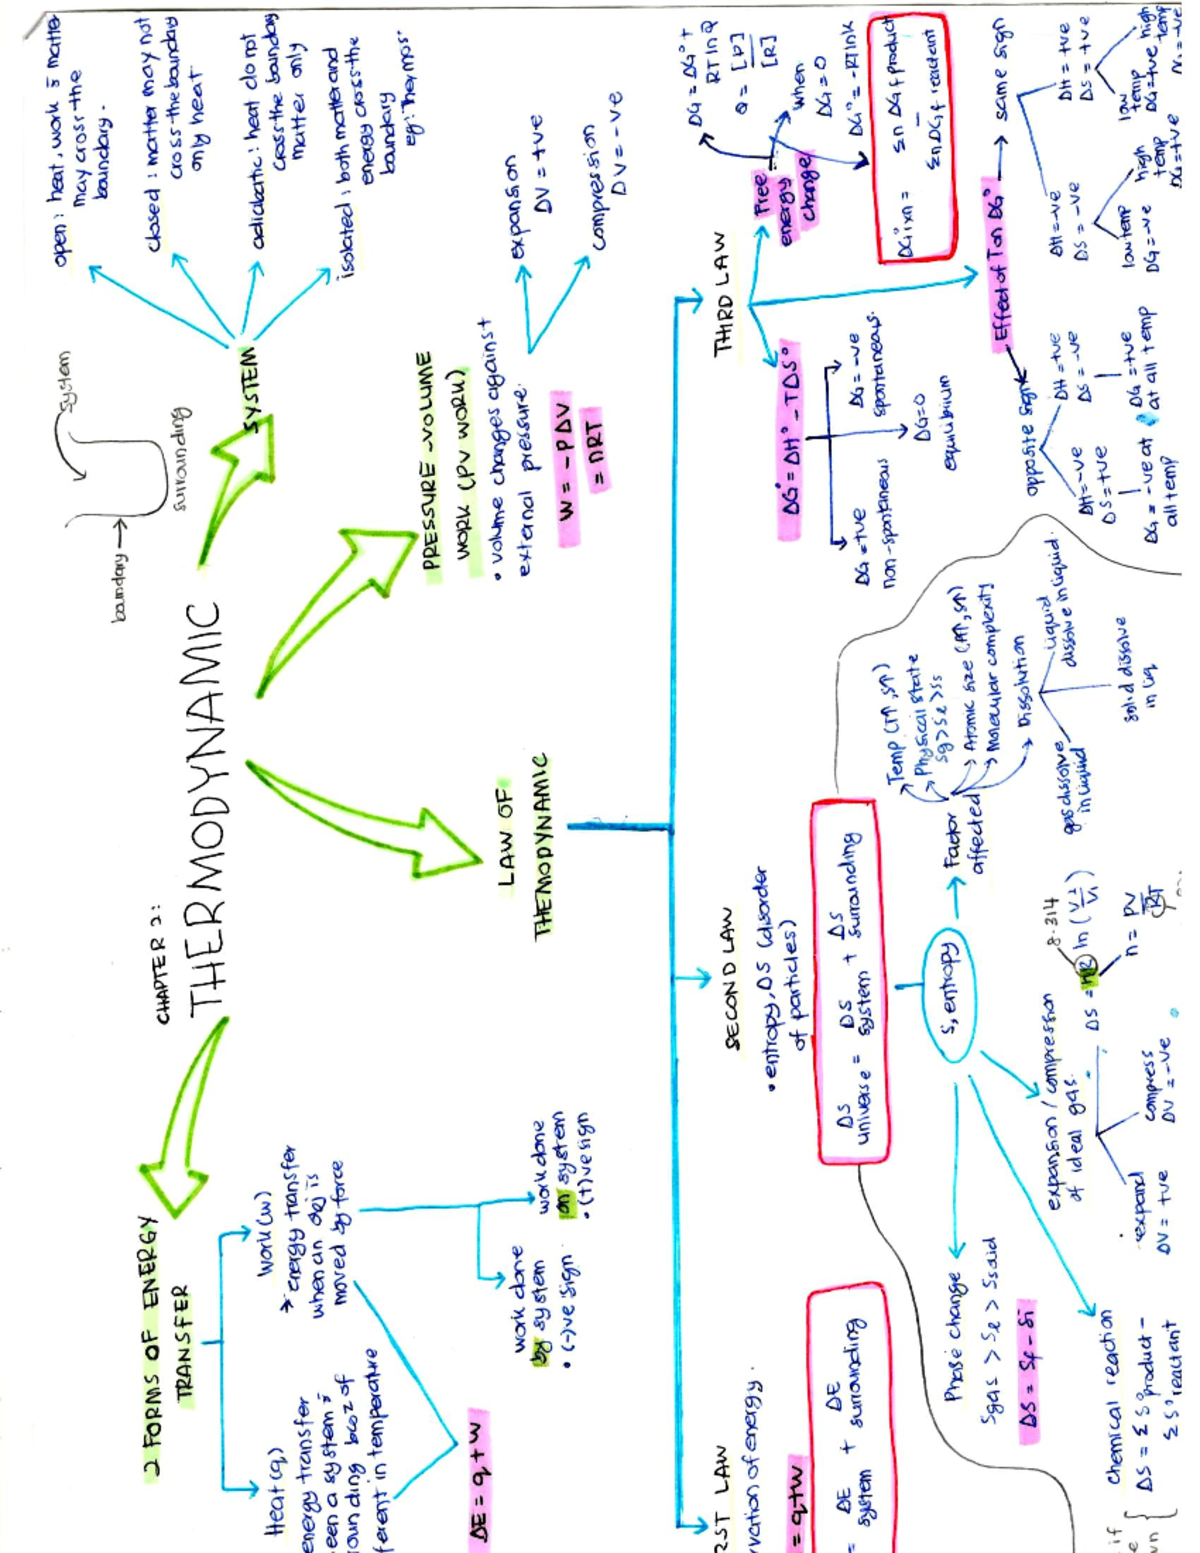 CHAPTER 2:
THERMODYNAMIC
boundary
system
surrounding
SYSTEM
open : heat, work & matter
may cross the
boundary.
closed : matter may not
cross the boundary
only heat
adiabatic : heat do not
cross the boundary
matter only
isolated : both matter and
energy cross the
boundary
eg: Thermos.
PRESSURE -VOLUME
WORK (PV WORK)
• volume changes against
external pressure.
W = -PΔV
= nRT
expansion
ΔV = +ve
compression
ΔV = -ve
2 FORMS OF ENERGY
TRANSFER
Heat (q)
energy transfer
een a system &
roun ding bcoz of
ferent in temperature
work (w)
→ energy transfer
when an obj is
moved by force
work done
by system
• (-)ve sign
work done
on system
• (+)ve sign
ΔE = q + w
LAW OF
THEMODYNAMIC
RST LAW
rvation of energy.
= q+w
= ΔE system + ΔE surrounding
SECOND LAW
• entropy, ΔS (disorder
of particles)
ΔS universe = ΔS system + ΔS surrounding
S, entropy
Factor
affected
Temp (T↑, S↑)
Physical state
Sg > Sl > Ss
Atomic size (A↑, S↑)
Molecular complexity
Dissolution
gas dissolve
in liquid
solid dissolve
in liq
liquid
dissolve in liquid.
Phase change
Sgas > Sl > Ssolid
ΔS = Sf - Si
expansion / compression
of ideal gas.
ΔS = nR ln (V2/V1)
8.314
n = PV/RT
expand
ΔV = +ve
compress
ΔV = -ve
chemical reaction
ΔS = Σ S°product -
Σ S°reactant
if
THIRD LAW
ΔG° = ΔH° - TΔS°
ΔG = +ve
non-spontaneous
ΔG = 0
equilibrium
ΔG = -ve
spontaneous.
Free
energy
change
ΔG = ΔG° +
RT ln Q
Q = [P]/[R]
when
ΔG = 0
ΔG° = -RTlnk
ΔG°rxn = Σn ΔGf product
-
Σn ΔGf reactant
Effect of T on ΔG°
opposite sign
ΔH = -ve
ΔS = +ve
ΔG = -ve at
all temp
ΔH = +ve
ΔS = -ve
ΔG = +ve
at all temp
same sign
ΔH = -ve
ΔS = -ve
low temp
ΔG = -ve
high
temp
ΔG = +ve
ΔH = +ve
ΔS = +ve
low
temp
ΔG = +ve
high
temp